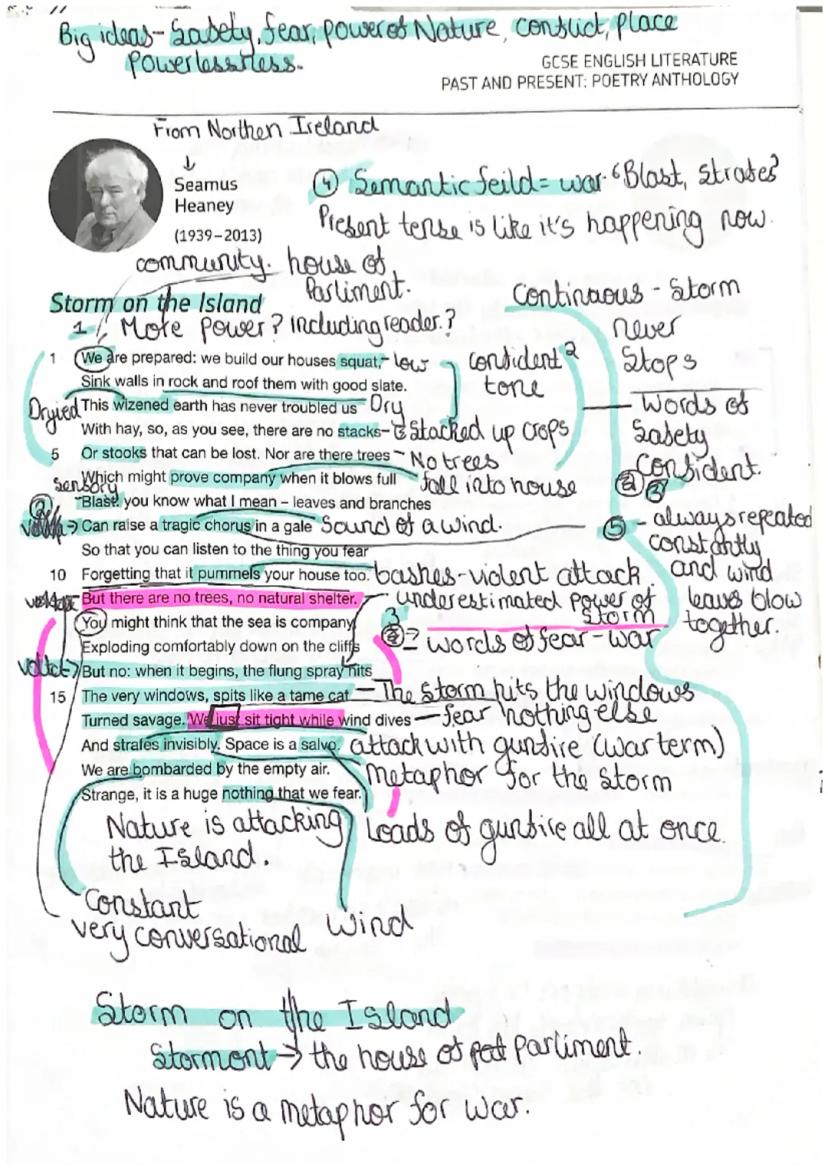 Big ideas- Safety, fear, power of Nature, conflict, place
Powerlessness.
GCSE ENGLISH LITERATURE
PAST AND PRESENT: POETRY ANTHOLOGY
From Northen Ireland
Seamus
Heaney
(1939–2013)
④ Semantic feild = war- "Blast, strafes"
Present tense is like it's happening now.
community. house of
Parliment.
Storm on the Island
1 More power? Including reader.?
Continuous - Storm
never
Stops
1 We are prepared: we build our houses squat, - low
confident 2
tone
Sink walls in rock and roof them with good slate.
Dryied This wizened earth has never troubled us Dry
words of
Safety
Confident.
With hay, so, as you see, there are no stacks- Stacked up crops
5 Or stooks that can be lost. Nor are there trees - No trees
Which might prove company when it blows full fall into house
sensory
Blast: you know what I mean – leaves and branches
volta → Can raise a tragic chorus in a gale Sound of a wind.
⑤ - always repeated
constantly
and wind
leaves blow
together.
So that you can listen to the thing you fear
10 Forgetting that it pummels your house too. bashes-violent attack
But there are no trees, no natural shelter. - underestimated power of
Storm
You might think that the sea is company,
3
words of fear - war
Exploding comfortably down on the cliffs
volta → But no: when it begins, the flung spray hits
15 The very windows, spits like a tame cat - The storm hits the windows
Turned savage. We just sit tight while wind dives - fear nothing else
And strafes invisibly. Space is a salvo. attack with gunfire (war term)
We are bombarded by the empty air. Metaphor for the storm
Strange, it is a huge nothing that we fear.
Nature is attacking
the Island.
Loads of gunfire all at once.
Constant
very conversational
wind
Storm on the Island
Stormont → the house of parliment.
Nature is a metaphor for war.